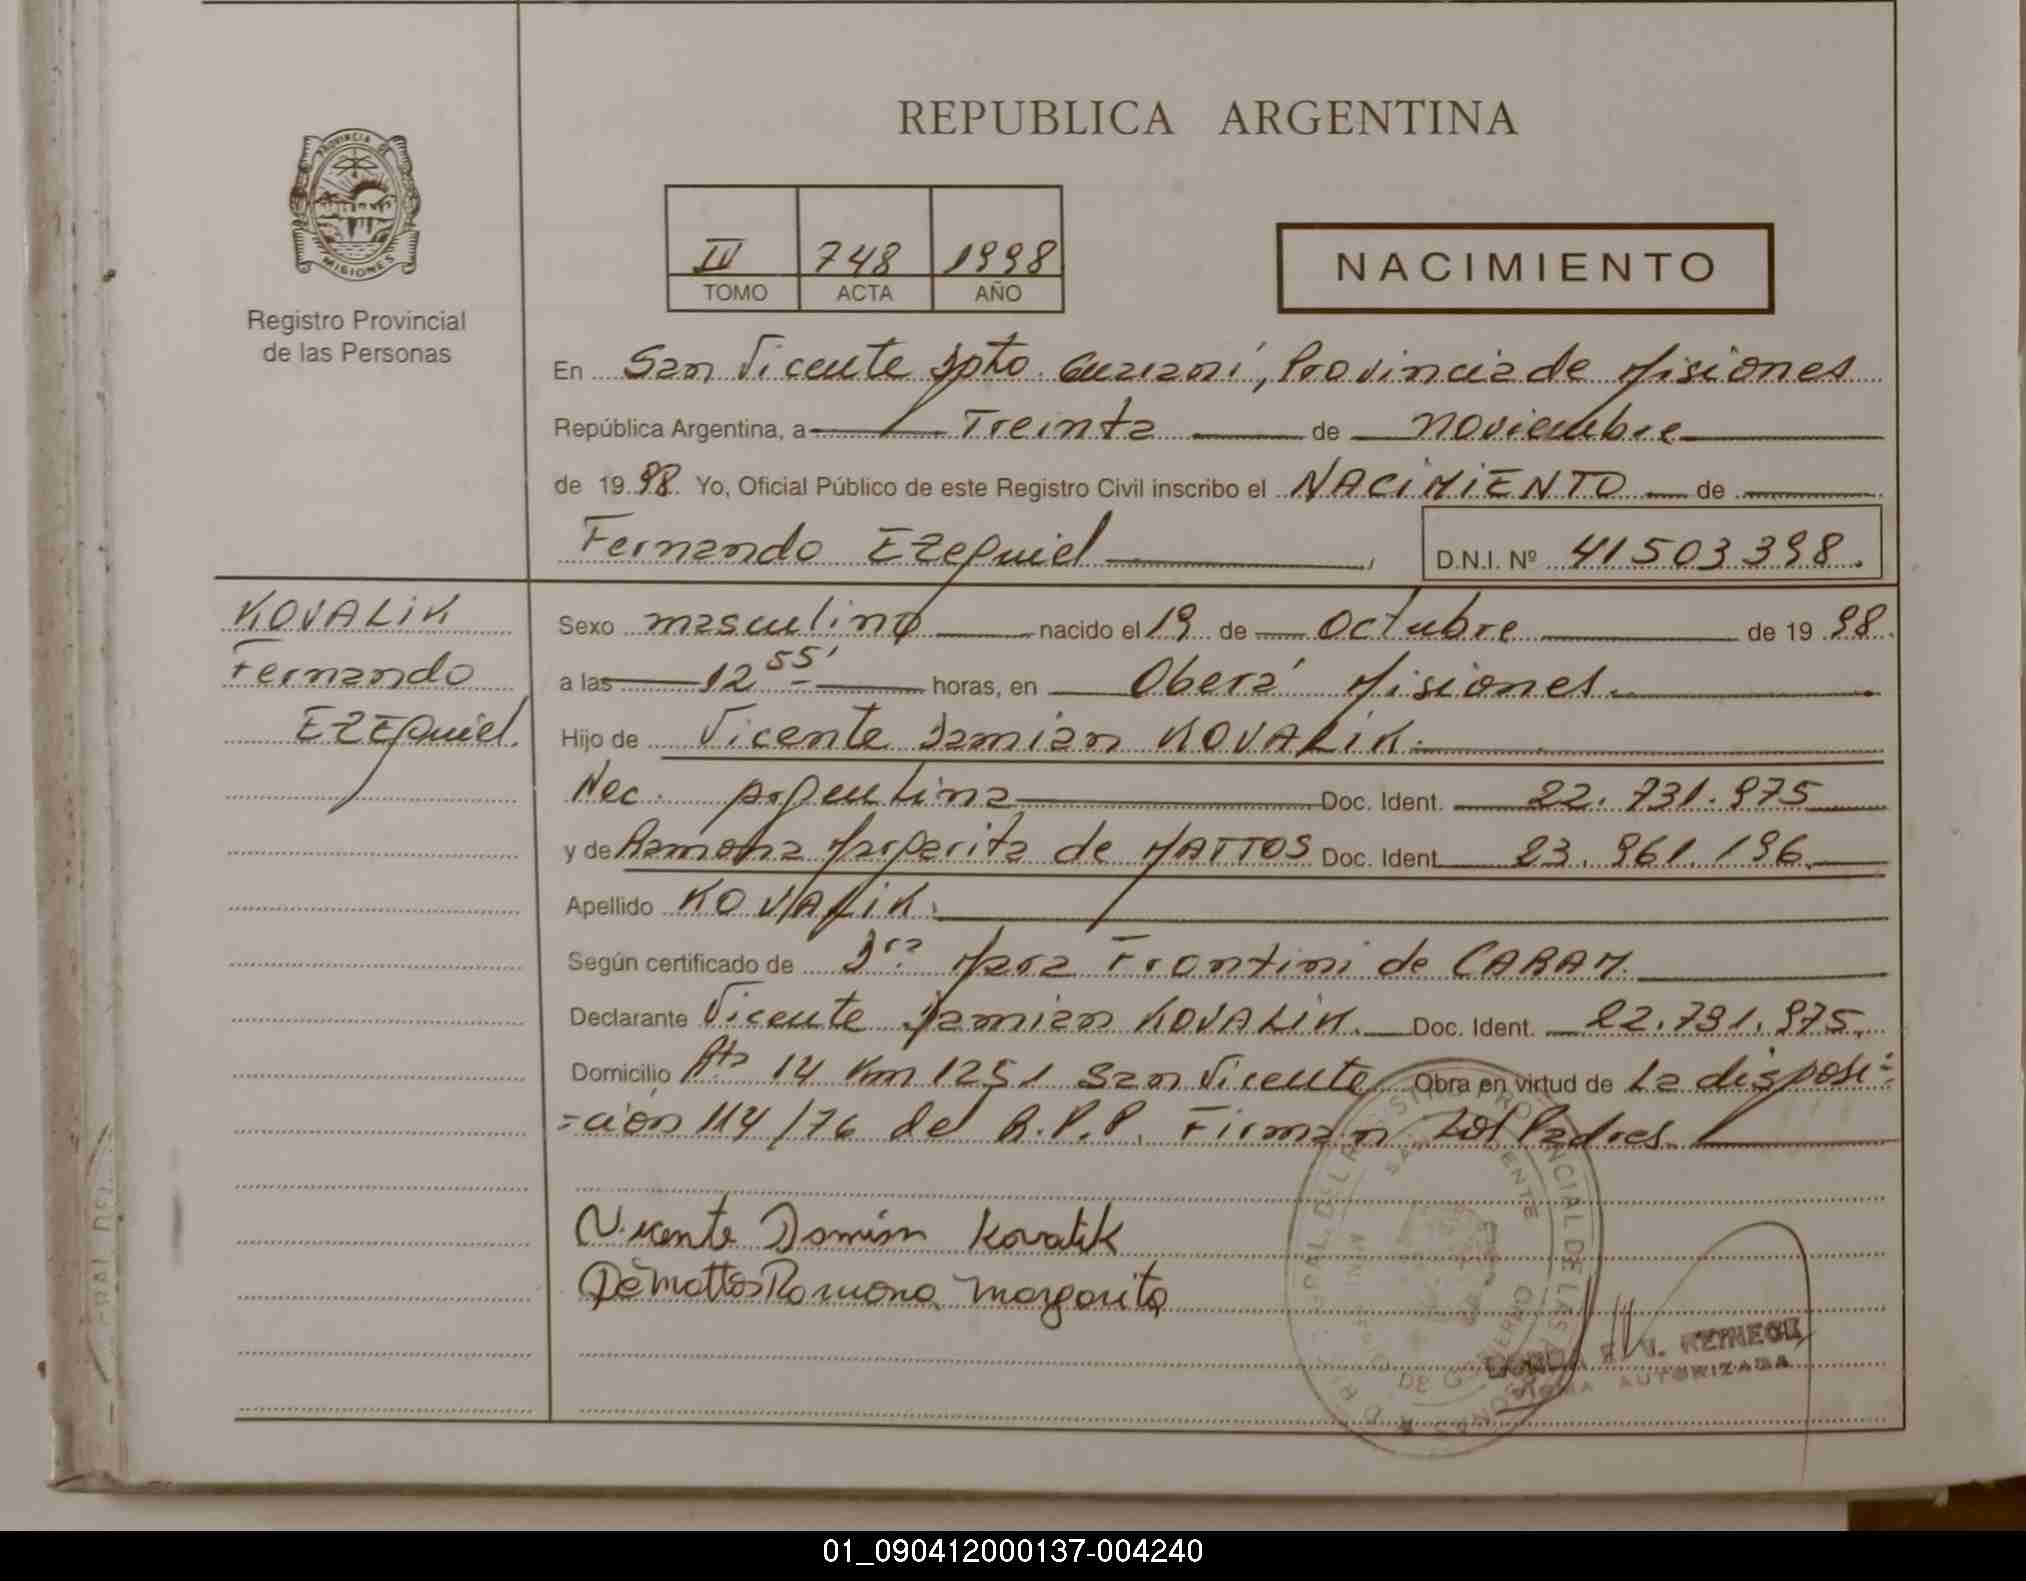 REPUBLICA ARGENTINA
PROVINCIA DE
MISIONES
Registro Provincial
de las Personas
IV 748 1998
TOMO ACTA AÑO
NACIMIENTO
En San Vicente Dpto. Guaraní, Provincia de Misiones
República Argentina, a Treinta de noviembre
de 1998. Yo, Oficial Público de este Registro Civil inscribo el NACIMIENTO de
Fernando Ezequiel, D.N.I. Nº 41503398.
KOVALIK
Fernando
EZEquiel.
Sexo masculino nacido el 19 de Octubre de 1998.
a las 12 55' horas, en Oberá Misiones.
Hijo de Vicente Damian KOVALIK.
Nac. Argentina Doc. Ident. 22.731.975
y de Ramona Margarita de MATTOS Doc. Ident. 23.961.196.
Apellido KOVALIK.
Según certificado de Dra Mara Frontini de CARAM.
Declarante Vicente Damian KOVALIK. Doc. Ident. 22.731.975.
Domicilio Rta 14 Km 1251 San Vicente Obra en virtud de La disposi=
=ción 114/76 del R.P.P. Firman Los Padres.
Vicente Damián Kovalik
De Mattos Ramona Margarita
REINECK
FIRMA AUTORIZADA
01_090412000137-004240